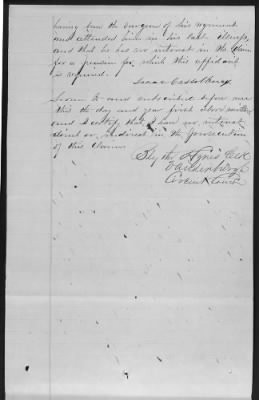 having been the surgeon of his regiment
and attended him in his last illness,
and that he has no interest in the claim
for a pension for which this affidavit
is required.
Isaac Casselberry
Sworn to and subscribed before me
this the day and year first above written
and I certify that I have no interest
direct or indirect in the prosecution
of this Claim
Blythe Hynes Clk
Vanderburgh
Circuit Court